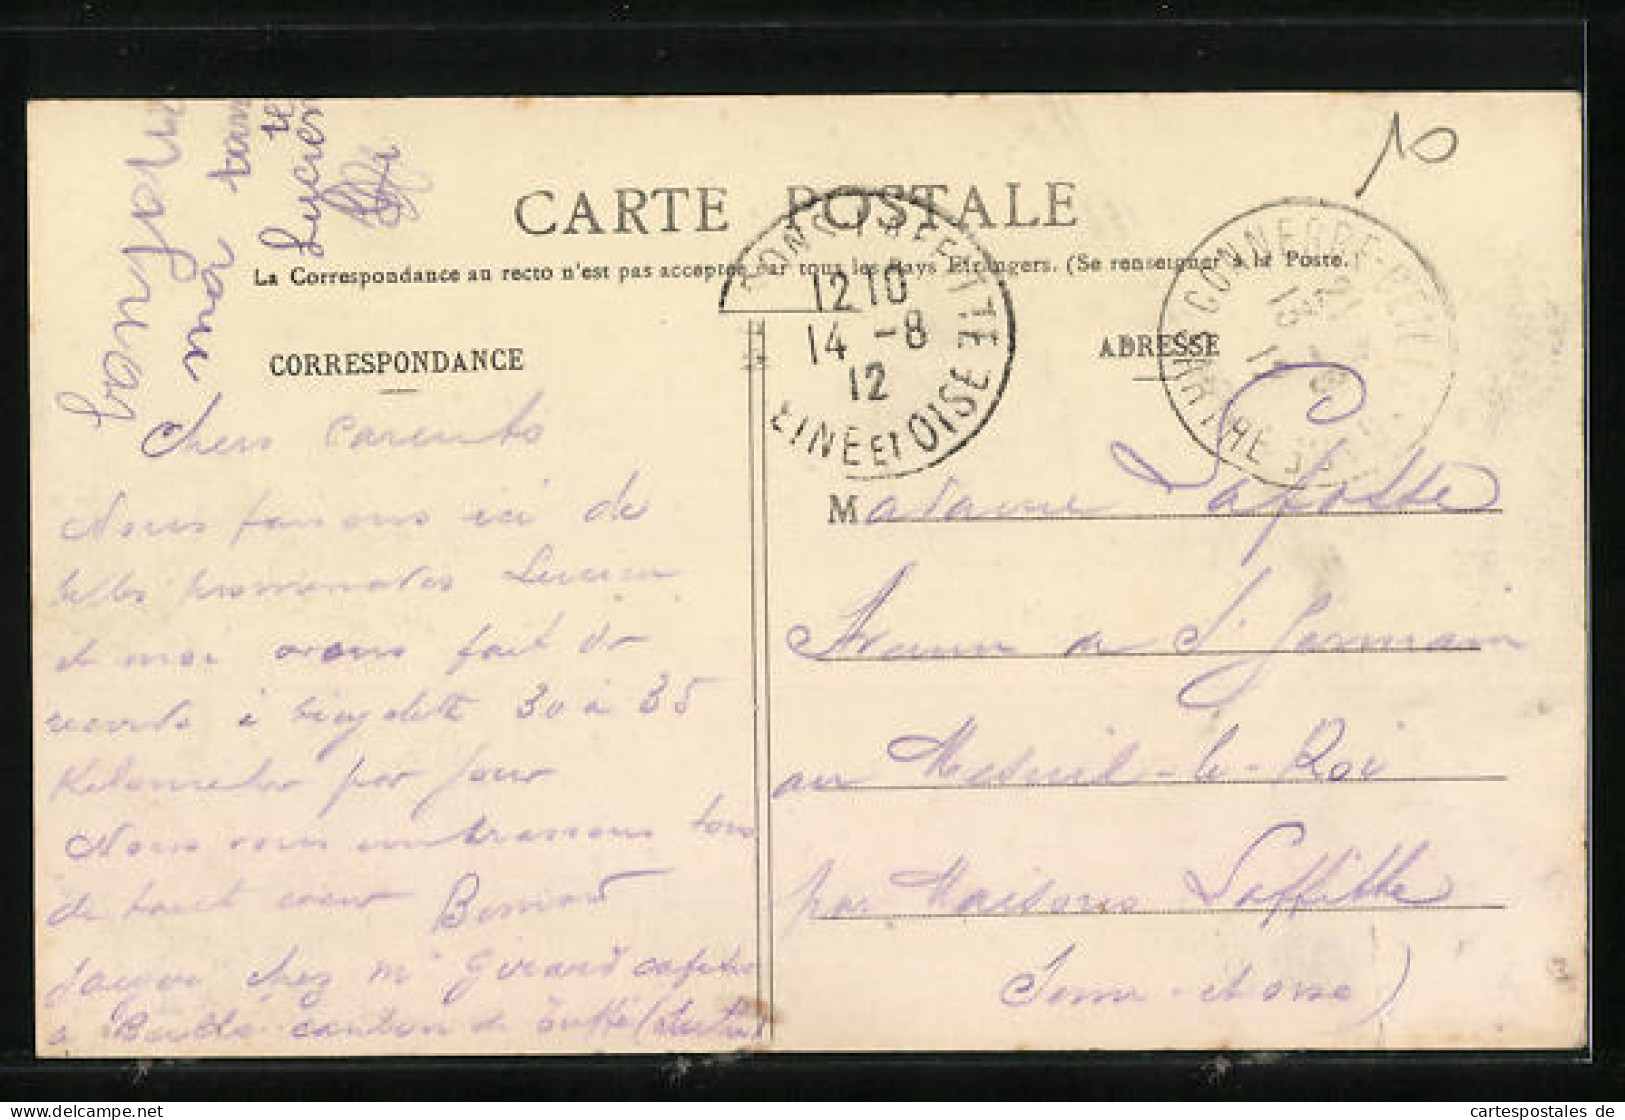 10
bonjour
ma tan
te
Lucien
CARTE POSTALE
La Correspondance au recto n'est pas acceptée par tous les Pays Etrangers. (Se renseigner à la Poste.)
CORRESPONDANCE
ADRESSE
12 10
14 -8
12
EINE ET OISE
CONNERRE-BEIL
SARTHE
Chers Parents
Nous faisons ici de
belles promenades Lucien
et moi avons fait de
records à bicyclette 30 à 35
Kilometre par jour
Nous vous embrassons tous
de tout coeur
chez Mr Girard cafetier
à Beillé canton de Tuffé (
Madame Lafosse
Avenue de St Germain
au Mesnil-le-Roi
par Maisons Laffitte
Seine-et-oise)
cartespostales de